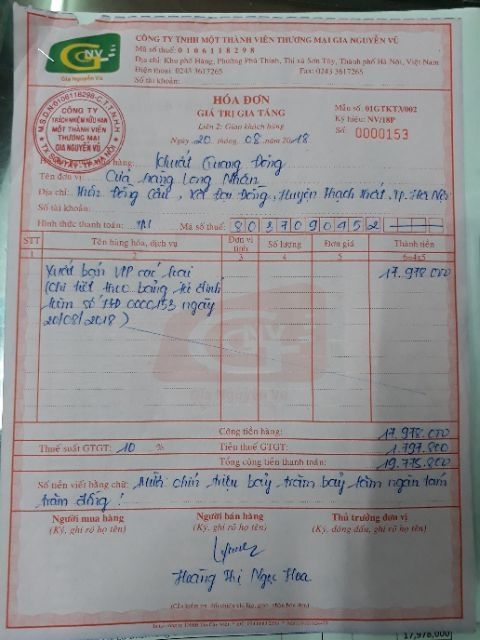 GNV
Gia Nguyễn Vũ
CÔNG TY TNHH MỘT THÀNH VIÊN THƯƠNG MẠI GIA NGUYỄN VŨ
Mã số thuế: 0 1 0 6 1 1 8 2 9 8
Địa chỉ: Khu phố Hàng, Phường Phú Thịnh, Thị xã Sơn Tây, Thành phố Hà Nội, Việt Nam
Điện thoại: 0243 3617265 Fax: 0243 3617265
Số tài khoản:
M.S.D.N:0106118298-C.T.T.N.H.H
CÔNG TY
TRÁCH NHIỆM HỮU HẠN
MỘT THÀNH VIÊN
THƯƠNG MẠI
GIA NGUYỄN VŨ
HÓA ĐƠN
GIÁ TRỊ GIA TĂNG
Liên 2: Giao khách hàng
Ngày 20 tháng 08 năm 2018
Mẫu số: 01GTKT3/002
Ký hiệu: NV/18P
Số: 0000153
hàng: Khuất Quang Đông
Tên đơn vị: Cửa hàng Long Nhân
Địa chỉ: Thôn Đồng Cầu, Xã Lại Đồng, Huyện Thạch Thất, Tp. Hà Nội
Số tài khoản:
Hình thức thanh toán: TM Mã số thuế: 8 0 3 7 0 9 0 4 5 2
STT Tên hàng hóa, dịch vụ Đơn vị tính Số lượng Đơn giá Thành tiền
1 2 3 4 5 6=4x5
Xuất bán VLP các loại 17.978.000
(Chi tiết theo bảng kê đính
kèm số HĐ 0000153 ngày
20/08/2018)
GNV
Gia Nguyễn Vũ
Cộng tiền hàng: 17.978.000
Thuế suất GTGT: 10 % Tiền thuế GTGT: 1.797.800
Tổng cộng tiền thanh toán: 19.775.800
Số tiền viết bằng chữ: Mười chín triệu bảy trăm bảy lăm ngàn tám
trăm đồng!
Người mua hàng Người bán hàng Thủ trưởng đơn vị
(Ký, ghi rõ họ tên) (Ký, ghi rõ họ tên) (Ký, đóng dấu, ghi rõ họ tên)
Hoàng Thị Ngọc Hoa
17,978,000